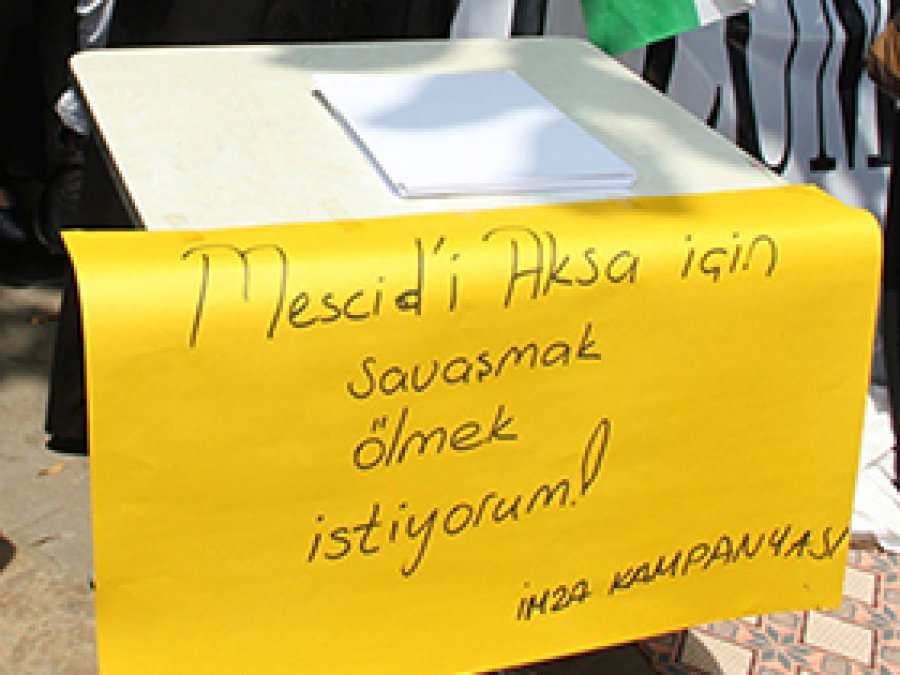 Mescid'i Aksa için
savaşmak
ölmek
istiyorum!
İMZA KAMPANYASI